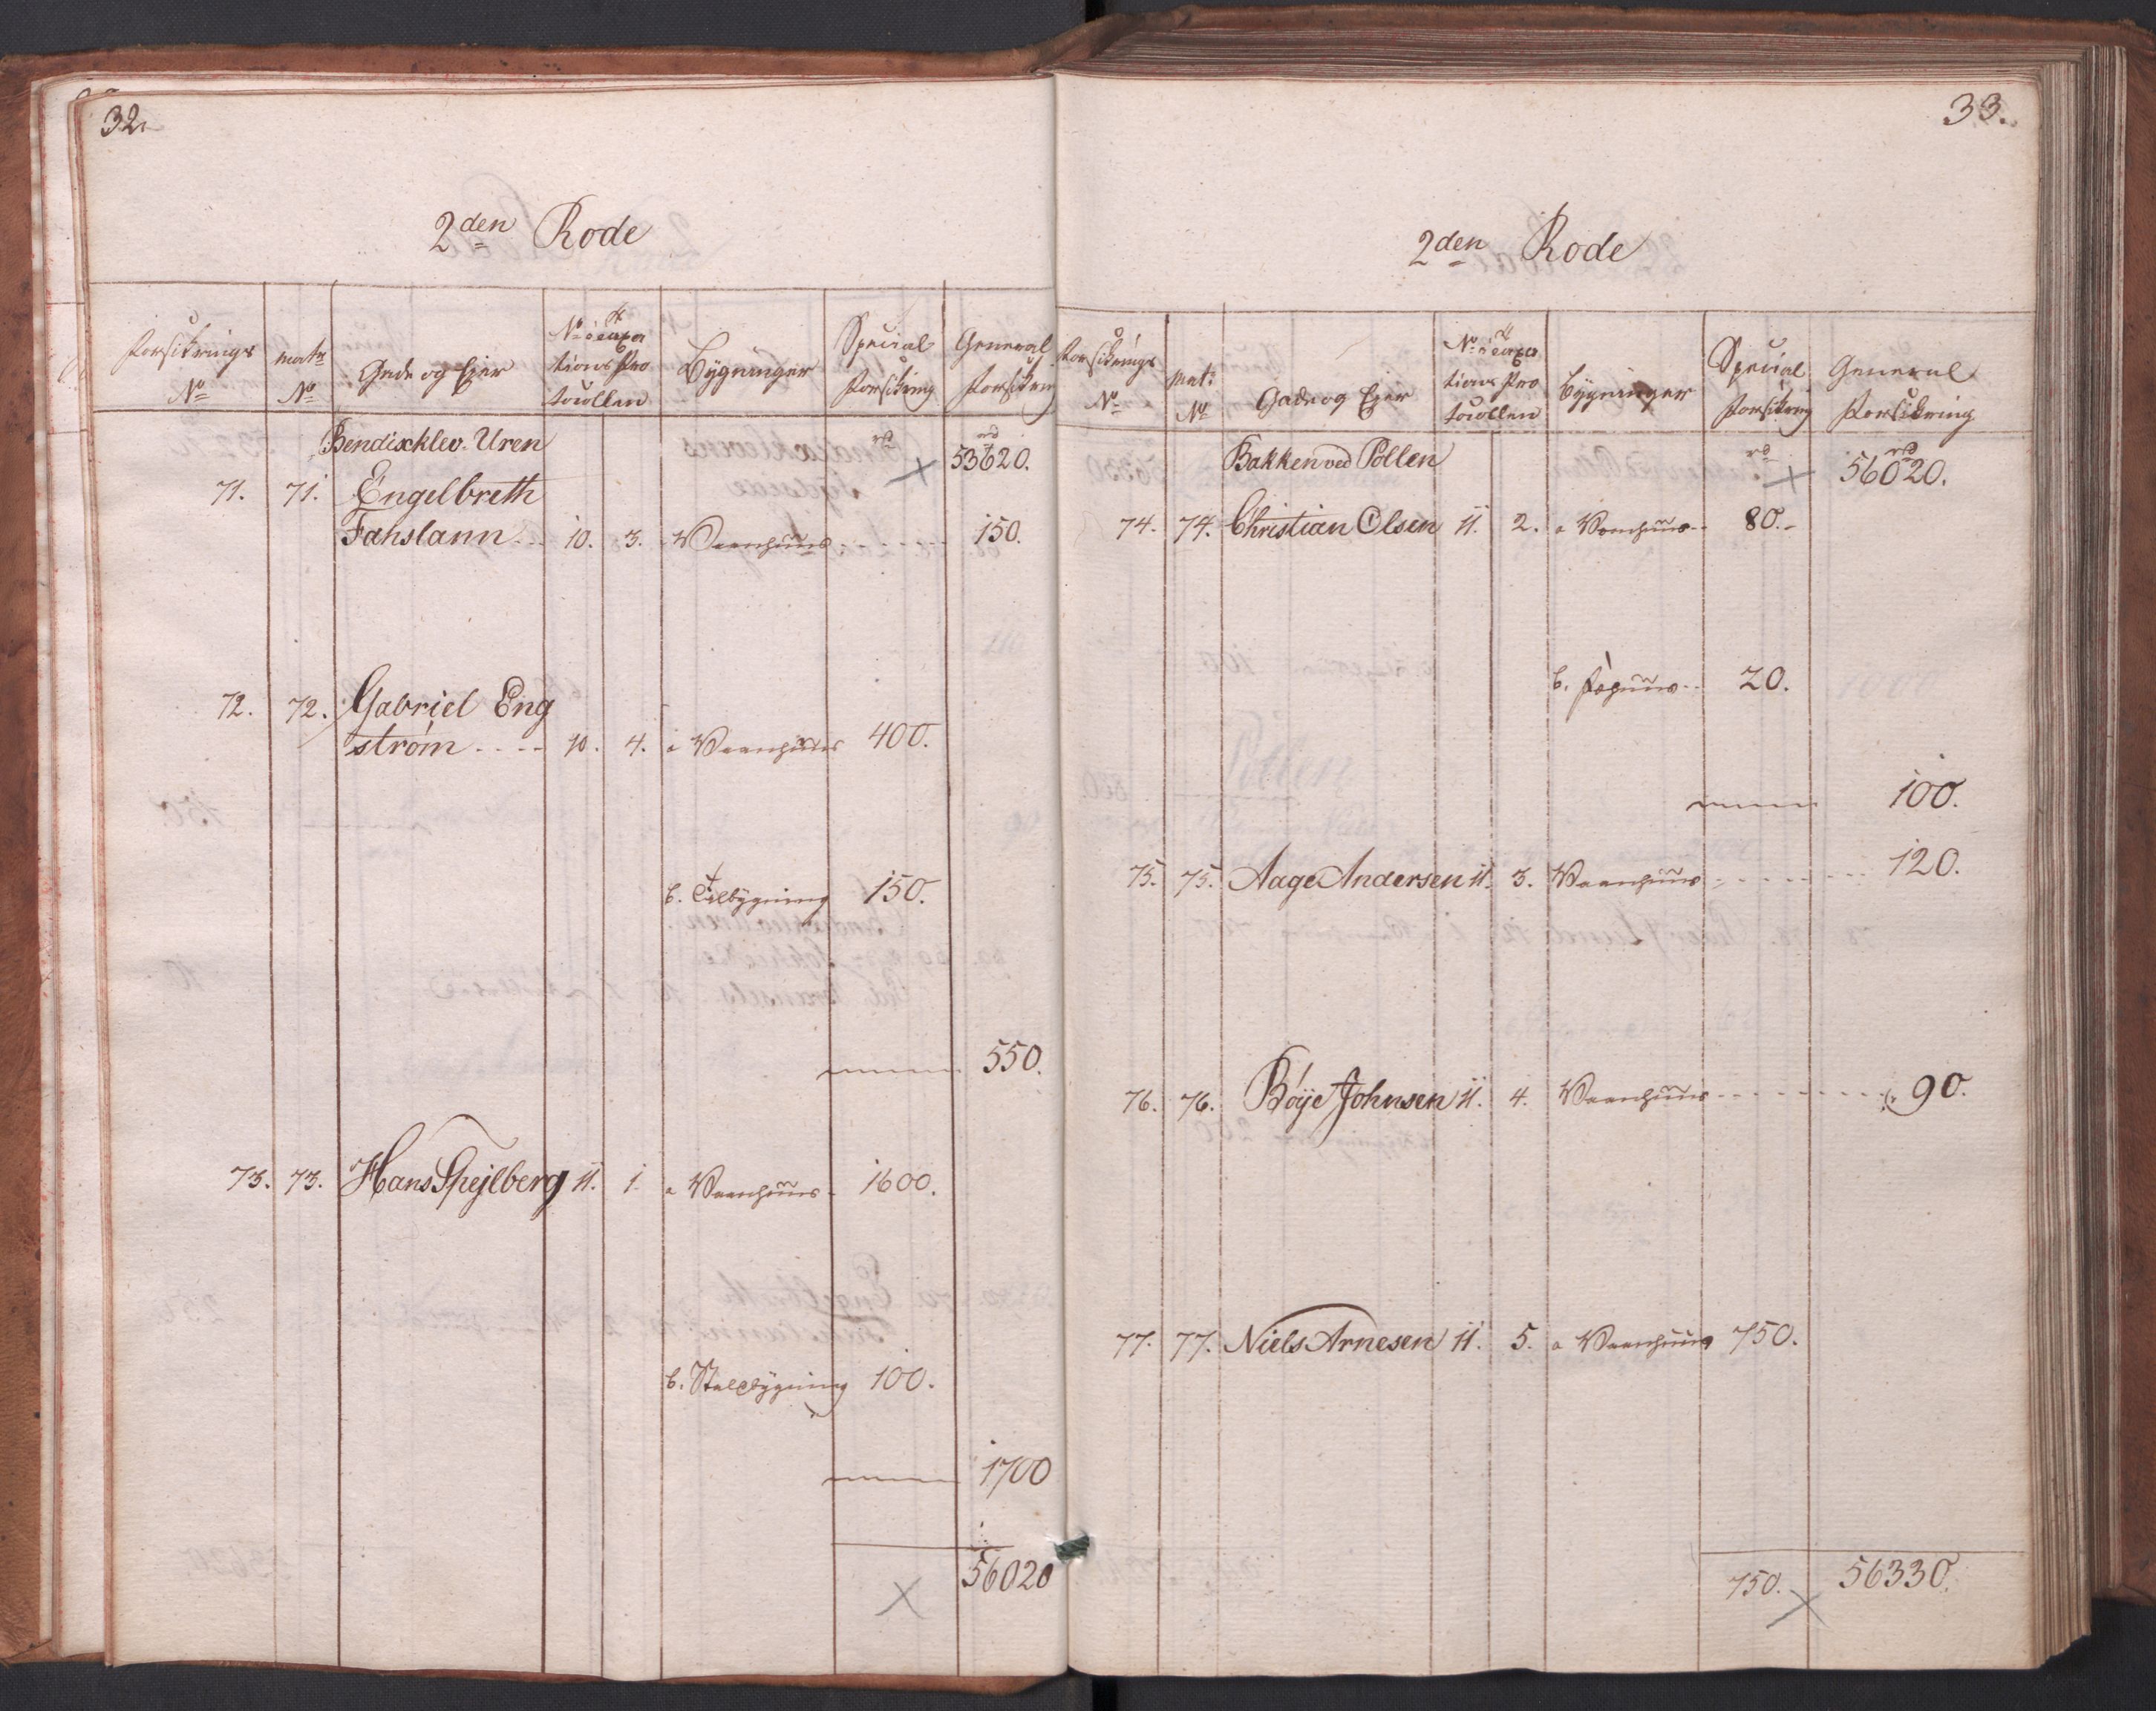 32.
2den Rode
Forsikrings No
Matr No
Gade og Ejer
No i Taxationsprotocollen
Bygninger
Special Forsikring
General Forsikring
Bendixklev. Uren rd rd
53620.
71. 71. Engelbreth
Fahslann 10. 3. Vaanhuus 150.
72. 72. Gabriel Eng
strøm 10. 4. a Vaanhuus 400.
b. bygning 150.
550.
73. 73. Hans Spejlberg 11. 1. a Vaanhuus 1600.
b. Staldbygning 100.
1700
56020
33.
2den Rode
Forsikrings No
Mat: No
Gade og Ejer
No i Taxationsprotocollen
Bygninger
Special Forsikring
General Forsikring
Bakken ved Pollen rd rd
56020.
74. 74. Christian Olsen 11. 2. a Vaanhuus 80.
b. Fæhuus 20.
100.
75. 75. Aage Andersen 11. 3. Vaanhuus 120.
76. 76. Bøye Johnsen 11. 4. Vaanhuus 90.
77. 77. Niels Arnesen 11. 5. a Vaanhuus 750.
750. 56330.